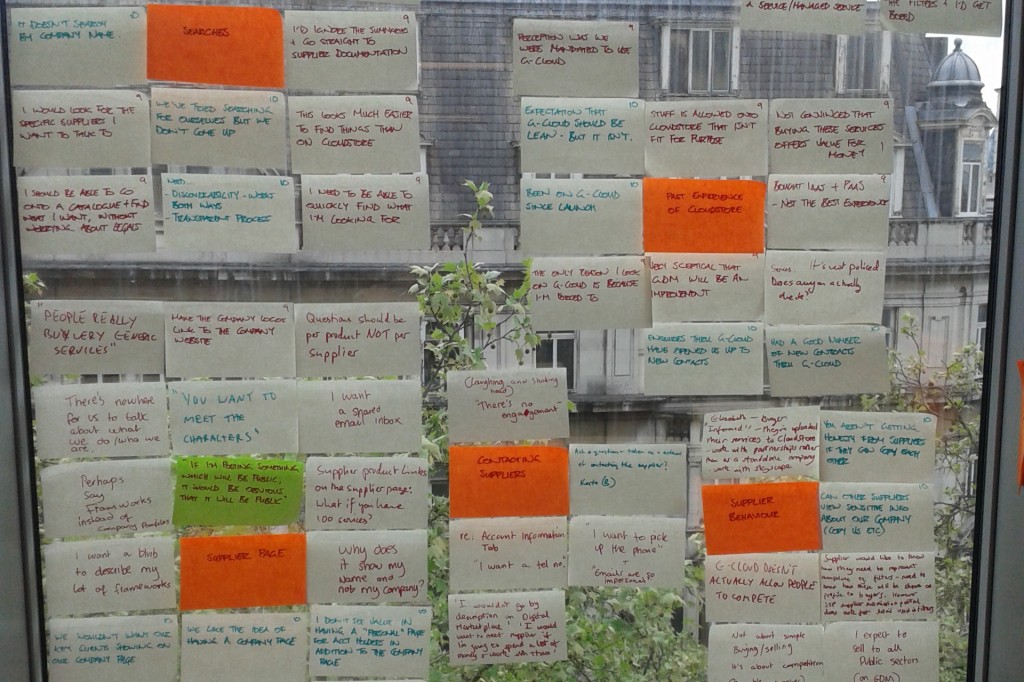 IT DOESN'T SEARCH
BY COMPANY NAME.
10
SEARCHES
I'D IGNORE THE SUMMARIES
+ GO STRAIGHT TO
SUPPLIER DOCUMENTATION
9
I WOULD LOOK FOR THE
SPECIFIC SUPPLIERS I
WANT TO TALK TO
9
WE'VE TRIED SEARCHING
FOR OURSELVES BUT WE
DON'T COME UP
10
THIS LOOKS MUCH EASIER
TO FIND THINGS THAN
ON CLOUDSTORE
9
I SHOULD BE ABLE TO GO
ONTO A CATALOGUE + FIND
WHAT I WANT, WITHOUT
WORRYING ABOUT LEGALS
9
NEED...
- DISCOVERABILITY - WORKS
BOTH WAYS
- TRANSPARENT PROCESS
10
I NEED TO BE ABLE TO
QUICKLY FIND WHAT
I'M LOOKING FOR
9
A SERVICE/MANAGED SERVICE
THE FILTERS + I'D GET
BORED
PERCEPTION WAS WE
WERE MANDATED TO USE
G-CLOUD
9
EXPECTATION THAT
G-CLOUD SHOULD BE
LEAN - BUT IT ISN'T.
10
STUFF IS ALLOWED ONTO
CLOUDSTORE THAT ISN'T
FIT FOR PURPOSE
9
NOT CONVINCED THAT
BUYING THESE SERVICES
OFFERS VALUE FOR
MONEY !
9
BEEN ON G-CLOUD
SINCE LAUNCH
10
PAST EXPERIENCE
OF CLOUDSTORE
BOUGHT IAAS + PAAS
- NOT THE BEST EXPERIENCE
9
THE ONLY REASON I LOOK
ON G-CLOUD IS BECAUSE
I'M FORCED TO
VERY SCEPTICAL THAT
GDM WILL BE AN
IMPROVEMENT
It's not policed
Does anyone actually
check?
ENQUIRIES THRU G-CLOUD
HAVE OPENED US UP TO
NEW CONTACTS
10
HAD A GOOD NUMBER
OF NEW CONTACTS
THRU G-CLOUD
10
"PEOPLE REALLY
BUY VERY GENERIC
SERVICES"
MAKE THE COMPANY LOGOS
LINK TO THE COMPANY
WEBSITE
9
Questions should be
per product NOT per
supplier
There's nowhere
for us to talk
about what
we do/who we
are.
"YOU WANT TO
MEET THE
CHARACTERS"
I want
a shared
email inbox
Perhaps
say
Frameworks
instead of
Company Profiles
IF I'M POSTING SOMETHING
WHICH WILL BE PUBLIC,
IT WOULD BE OBVIOUS
THAT IT WILL BE PUBLIC
Supplier product links
on the supplier page.
What if you have
100 services?
I want a blurb
to describe my
lot of frameworks
SUPPLIER PAGE
Why does
it show my
Name and
not my company?
WE WOULDN'T WANT OUR
KEY CLIENTS SHOWING ON
OUR COMPANY PAGE
10
WE LIKE THE IDEA OF
HAVING A COMPANY PAGE
10
I DON'T SEE VALUE IN
HAVING A "PERSONAL" PAGE
FOR ACCT HOLDERS IN
ADDITION TO THE COMPANY
PAGE
10
(Laughing and shaking
head)
"There's no
engagement"
CONTACTING
SUPPLIERS
of contacting the supplier?
re: Account Information
Tab
"I want a tel no."
"I want to pick
up the phone"
+
"Emails are so
impersonal"
"I wouldn't go by
description in Digital
Marketplace. I would
want to meet supplier if
I'm going to spend a lot of
money + work with them"
they uploaded
their services to Cloudstore
work with partnerships rather
than as a standalone company
work with Skyscape
YOU AREN'T GETTING
HONESTY FROM SUPPLIERS
IF THEY CAN COPY EACH
OTHER
10
SUPPLIER
BEHAVIOUR
CAN OTHER SUPPLIERS
VIEW SENSITIVE INFO
ABOUT OUR COMPANY
(COPY US ETC)
10
G-CLOUD DOESN'T
ACTUALLY ALLOW PEOPLE
TO COMPETE
Supplier would like to know
Not about simple
Buying/selling
It's about competition
I expect to
sell to all
Public sectors
(on GDM)